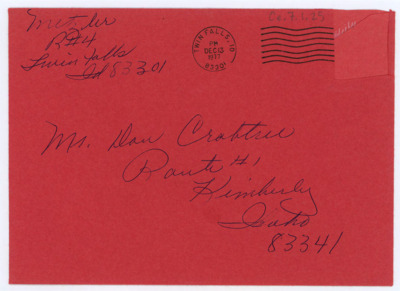 Metzler
Rt 4
Twin Falls
Id 83301
Ca.7.1.25
TWIN FALLS, ID
PM
DEC 13
1977
Mr. Don Crabtree
Route #1
Kimberly
Idaho
83341